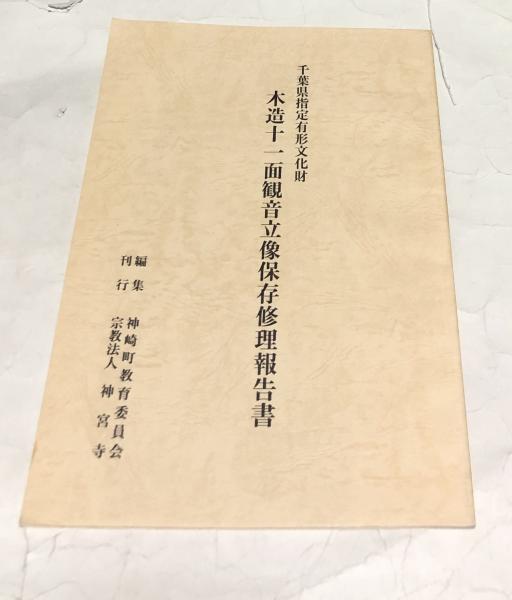 千葉県指定有形文化財
木造十一面観音立像保存修理報告書
編集 神崎町教育委員会
刊行 宗教法人 神宮寺